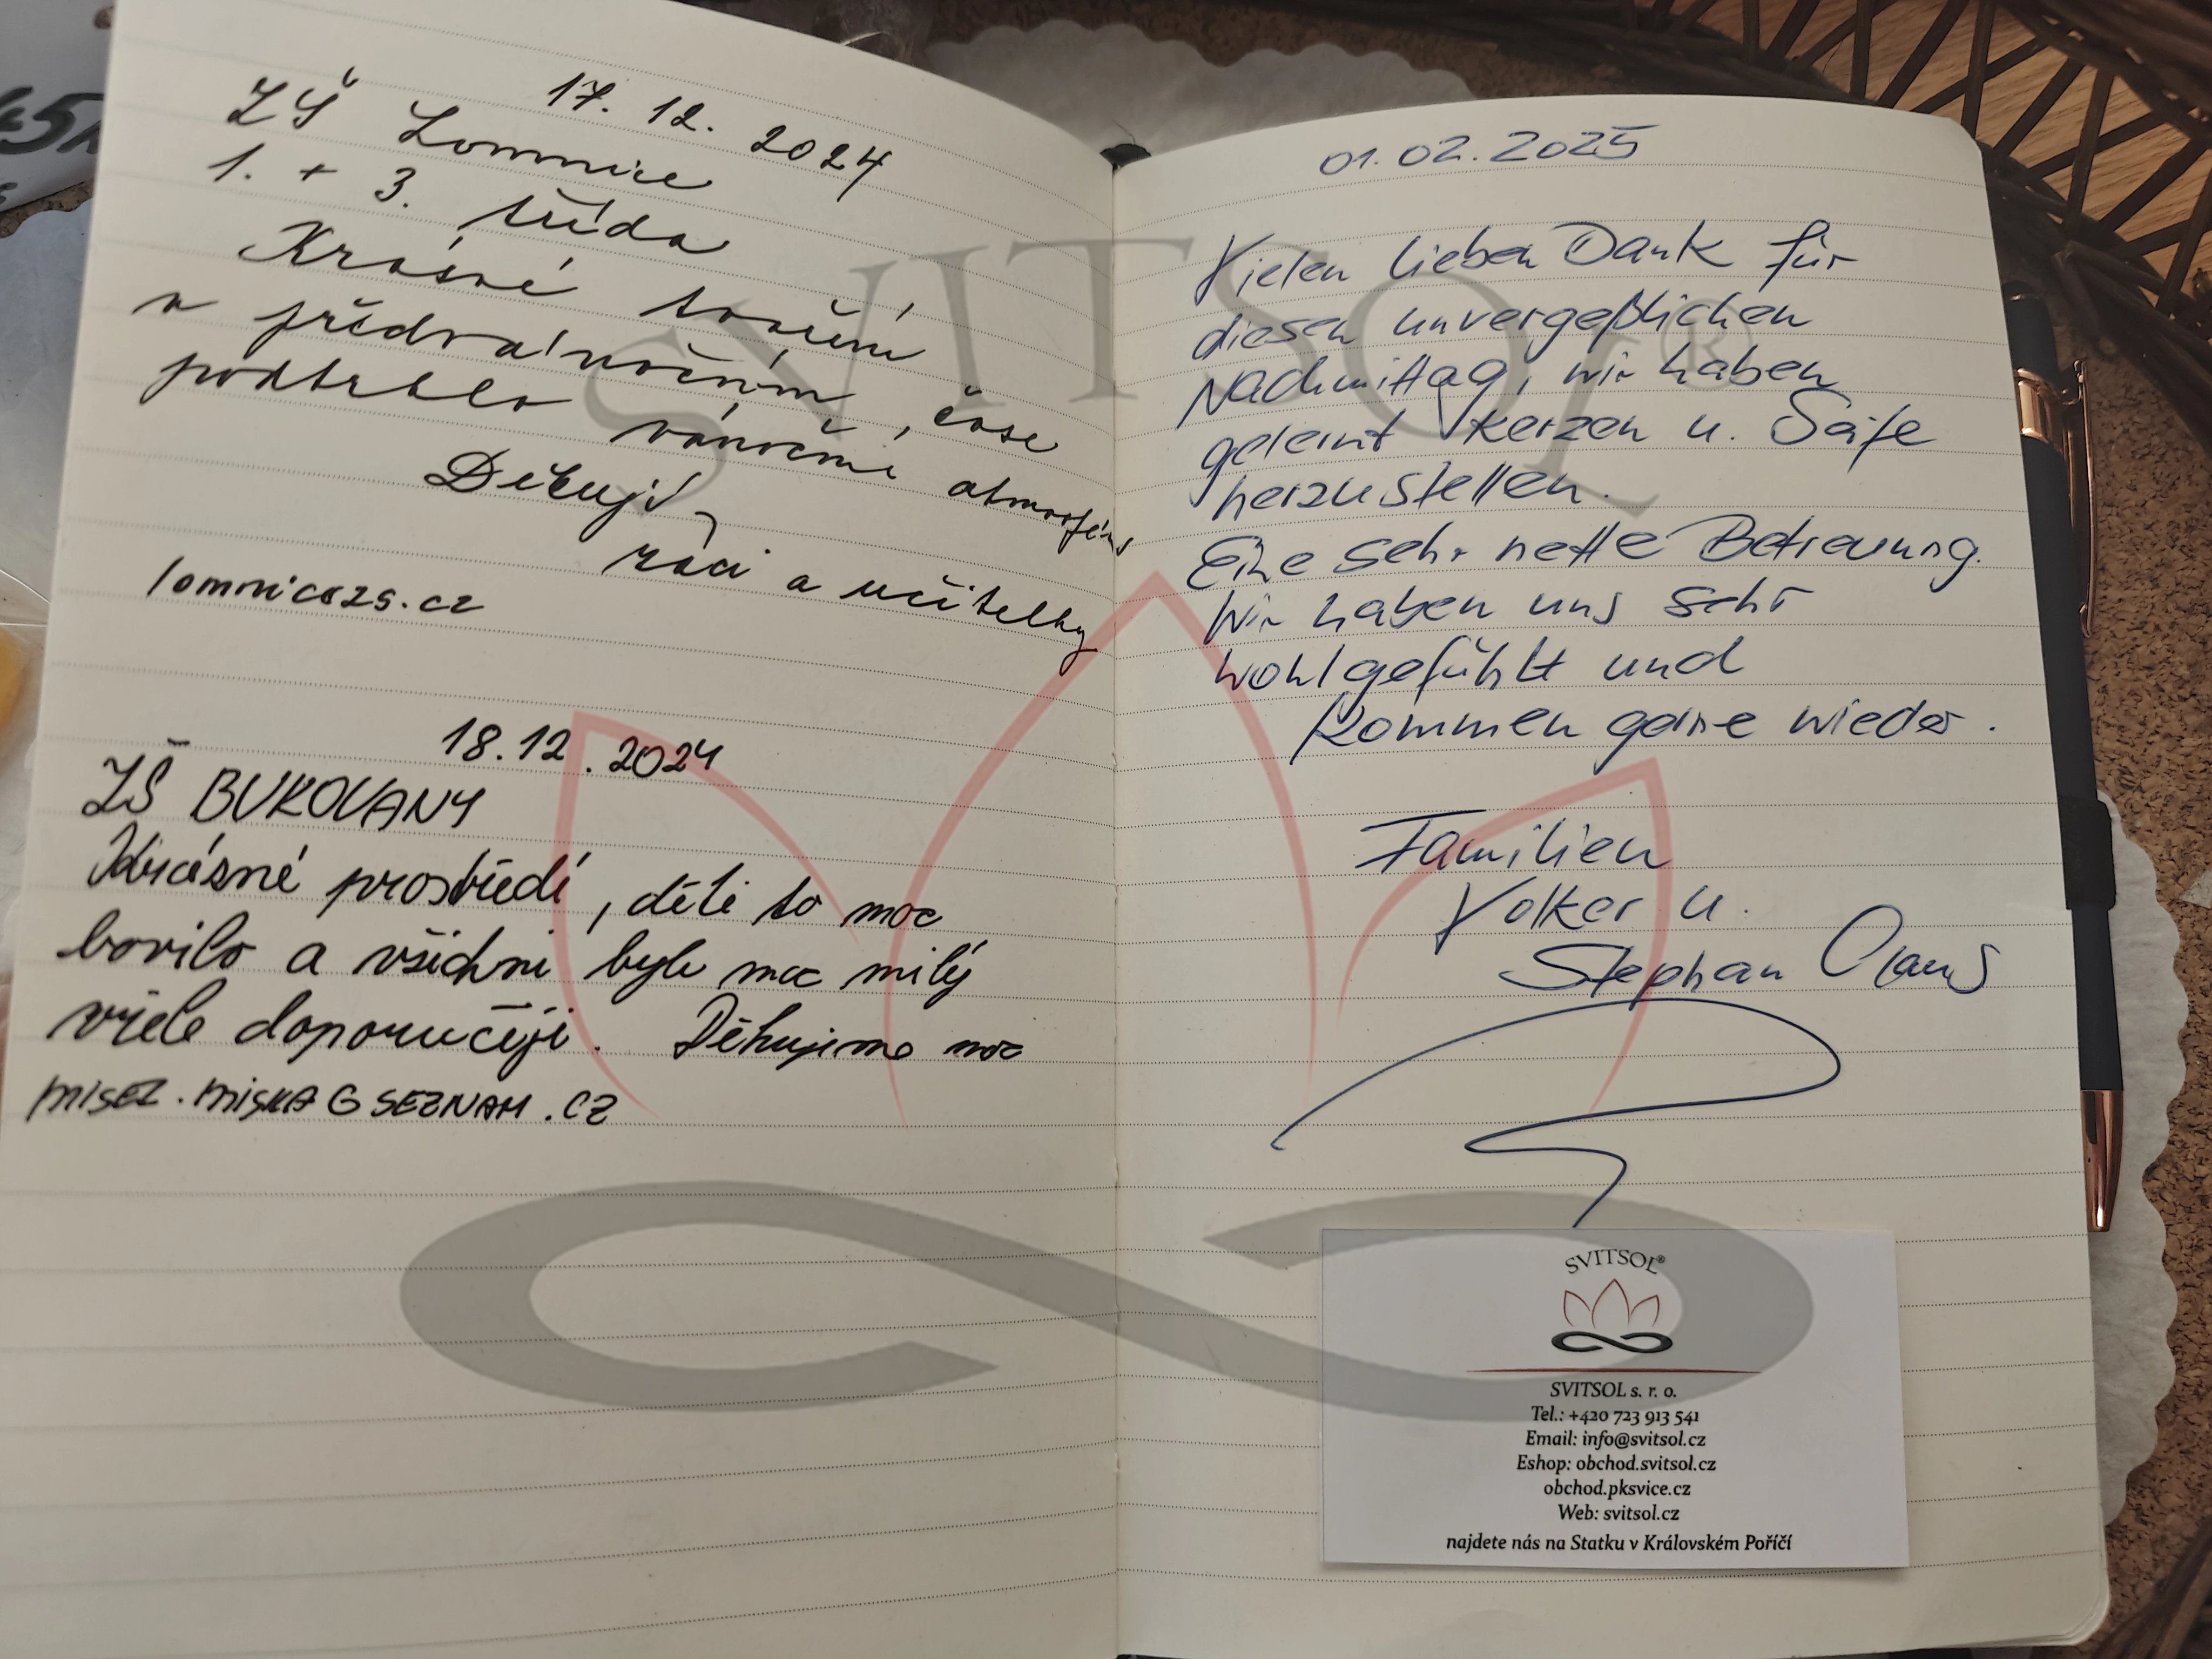 17. 12. 2024
ZŠ Lomnice
1. + 3. třída
Krásné tvoření
v předvánočním čase
podtrhlo vánoční atmosféru
Děkují
žáci a učitelky
lomnicezs.cz
18.12.2024
ZŠ BUKOVANY
Krásné prostředí, děti to moc
bavilo a všichni byli moc milý
vřele doporučuji. Děkujeme moc
MISEZ.MISKA@SEZNAM.CZ
01.02.2025
Vielen lieben Dank für
diesen unvergeßlichen
Nachmittag, wir haben
gelernt Kerzen u. Seife
herzustellen.
Eine sehr nette Betreuung.
Wir haben uns sehr
wohlgefühlt und
kommen gerne wieder.
Familien
Volker u.
Stephan Claus
SVITSOL®
SVITSOL®
SVITSOL s. r. o.
Tel.: +420 723 913 541
Email: info@svitsol.cz
Eshop: obchod.svitsol.cz
obchod.pksvice.cz
Web: svitsol.cz
najdete nás na Statku v Královském Poříčí